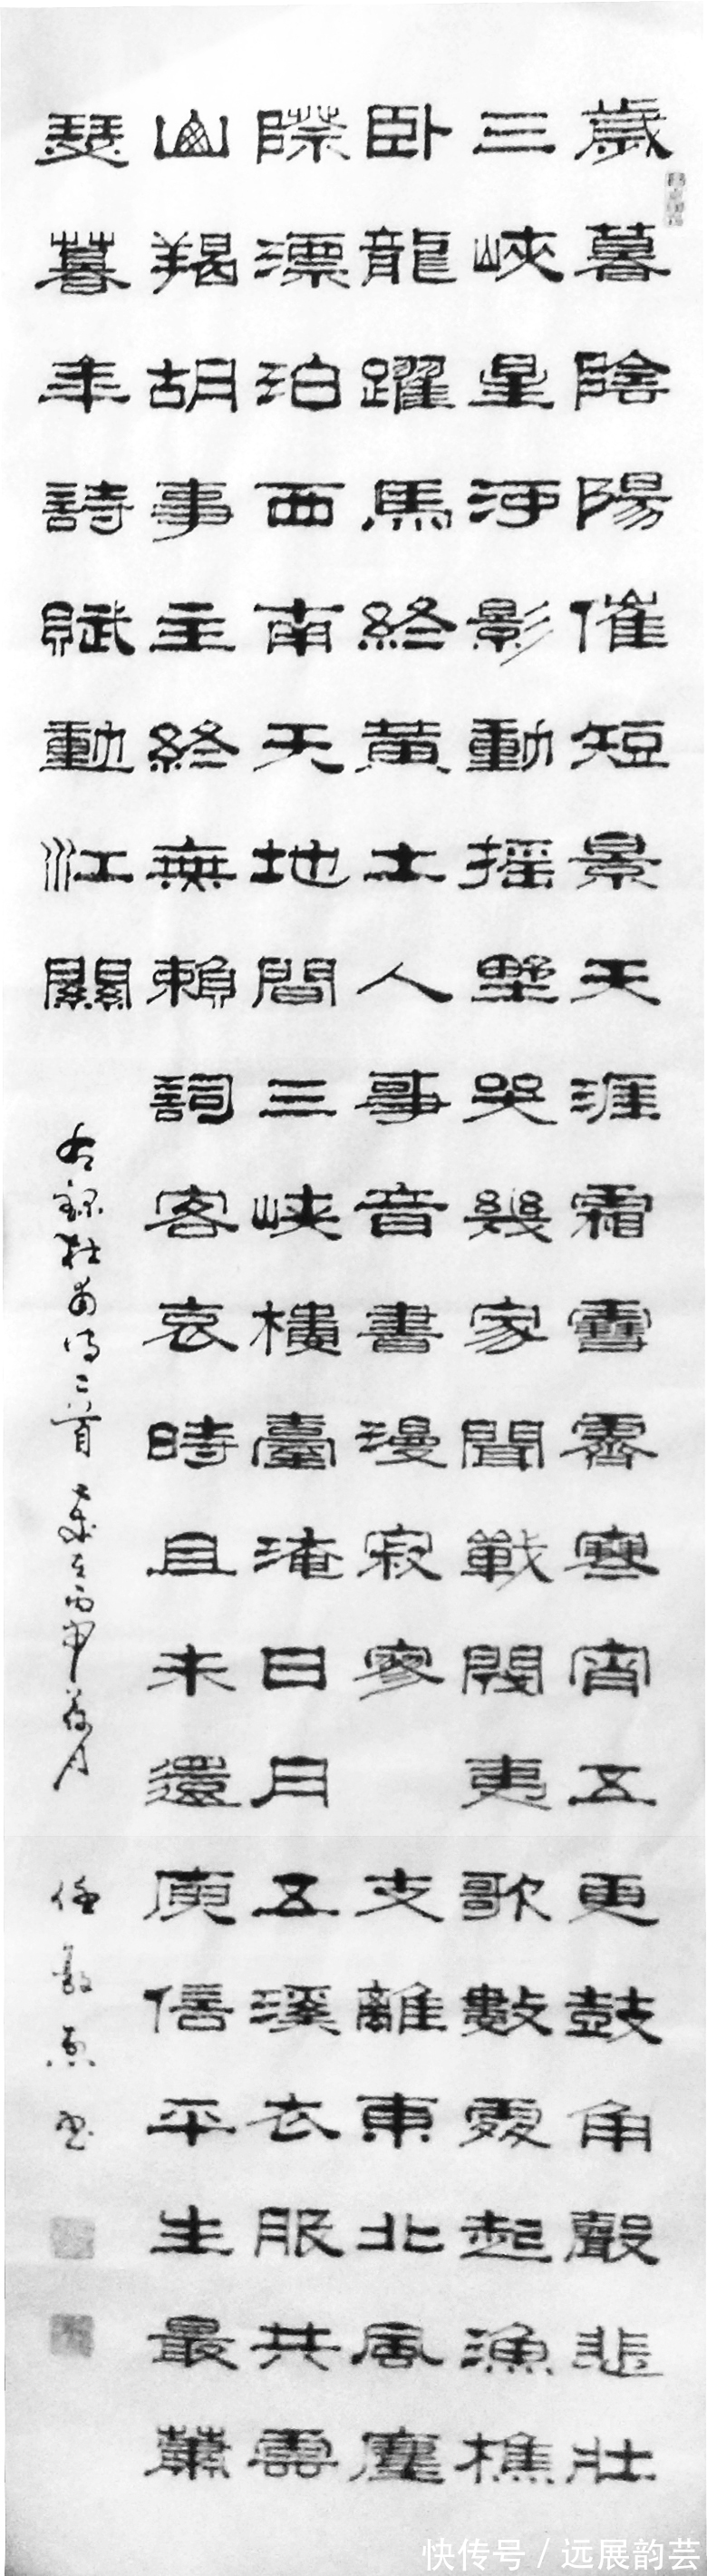 歲暮陰陽催短景天涯霜雪霽寒宵五更鼓角聲悲壯
三峽星河影動摇壄哭幾家聞戰閥夷歌數處起漁樵
卧龍躍馬終黄土人事音書漫寂寥 支離東北風塵
際漂泊西南天地間三峽樓臺淹日月五溪衣服共雲
山羯胡事主終無賴詞客哀時且未還庾信平生最蕭
瑟暮年詩賦動江關
右録杜甫詩二首 歲在丙申荷月
任 書
快传号 / 远展韵芸